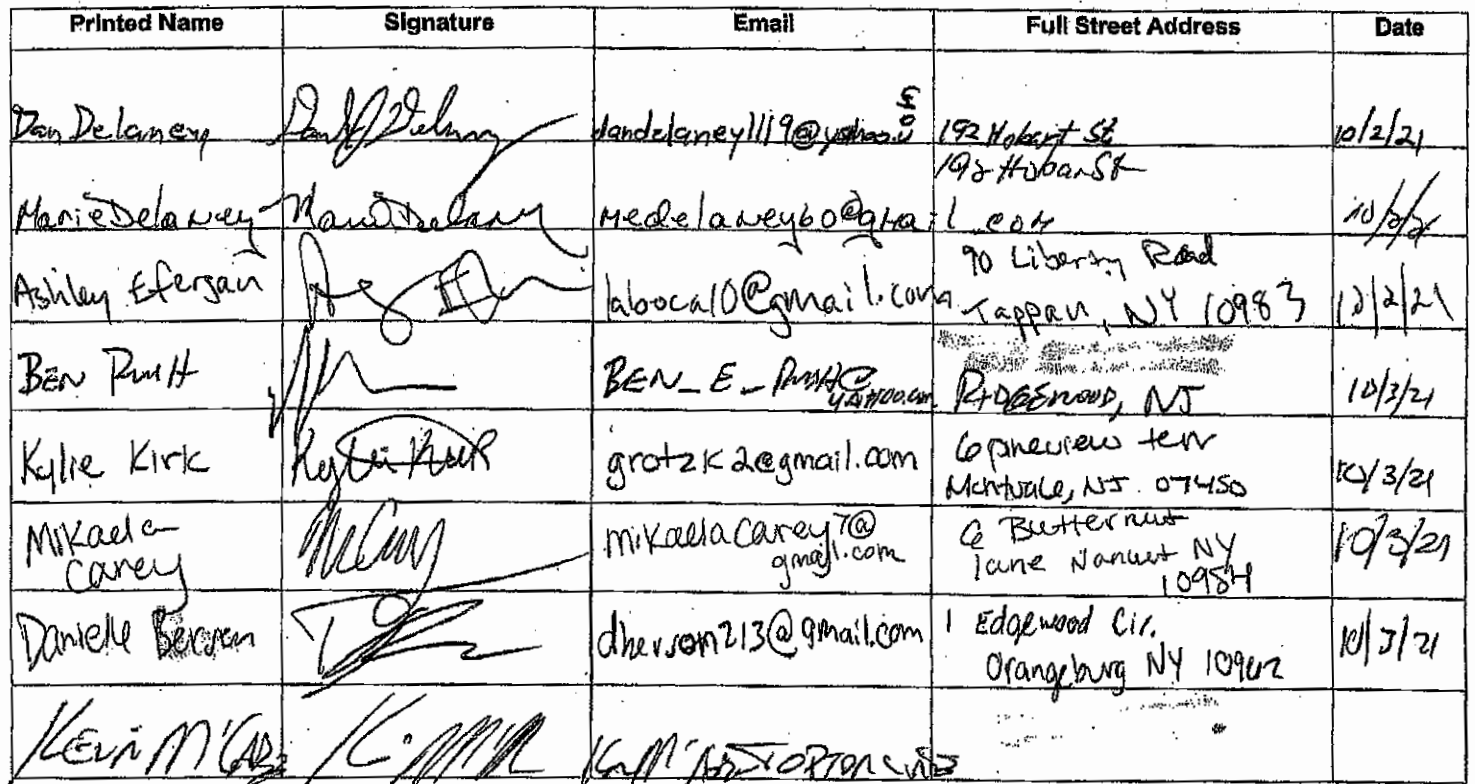 Printed Name Signature Email Full Street Address Date
Dan Delaney dandelaney1119@yahoo.com 192 Hobart St 10/2/21
192 Hobart St
Marie Delaney Marie Delaney medelaney60@gmail.com 10/2/21
Ashley Efergan laboca10@gmail.com 90 Liberty Road
Tappan, NY 10983 10/2/21
BEN BEN_E_
YAHOO.com RIDGEWOOD, NJ 10/3/21
Kylie Kirk Kylie Kirk grotzk2@gmail.com 6 pineview terr
Montvale, NJ. 07450 10/3/21
Mikaela
Carey mikaelacarey7@
gmail.com 6 Butternut
lane Nanuet NY
10954 10/3/21
Danielle 1 Edgewood Cir.
Orangeburg NY 10962 10/3/21
KEVIN McCABE